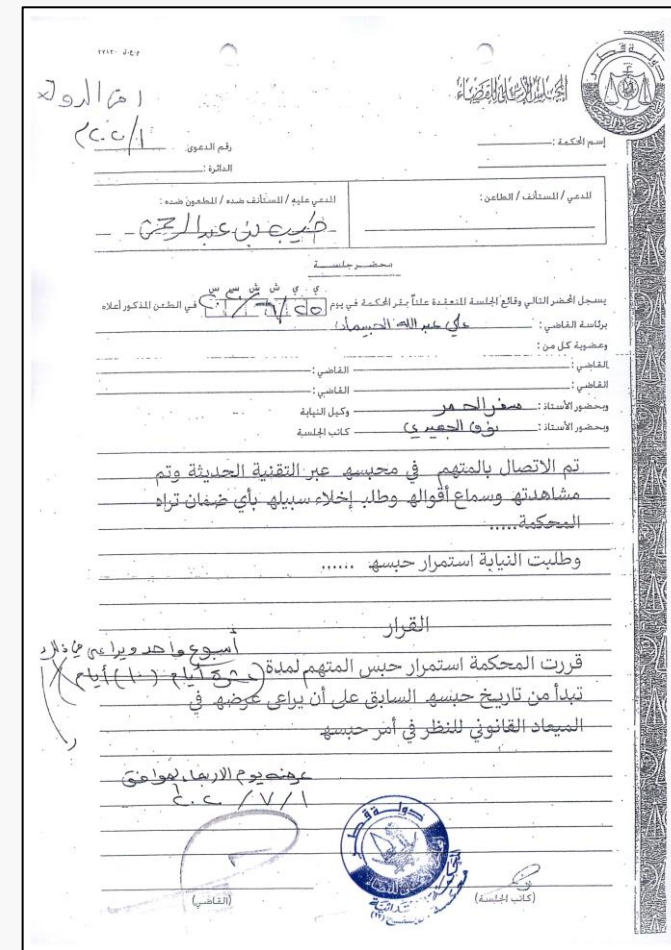 م.ع.ق ٢٧١٢٠
المجلس الأعلى للقضاء
دولة قطر
أمن الدولة
رقم الدعوى
الدائرة :
إسم المحكمة :
المدعي / المستأنف / الطاعن :
المدعي عليه / المستأنف ضده / المطعون ضده :
بن عبدالرحمن
محضر جلسة
ي ي ش ش س س
يسجل المحضر التالي وقائع الجلسة المنعقدة علناً بمقر المحكمة في يوم في الطعن المذكور أعلاه
برئاسة القاضي : علي عبدالله
وعضوية كل من :
القاضي : القاضي :
القاضي : القاضي :
وبحضور الأستاذ : وكيل النيابة
وبحضور الأستاذ : كاتب الجلسة
تم الاتصال بالمتهم في محبسه عبر التقنية الحديثة وتم
مشاهدته وسماع أقواله وطلب إخلاء سبيله بأي ضمان تراه
المحكمة.....
وطلبت النيابة استمرار حبسه ......
القرار
أسبوع واحد ويراعى
قررت المحكمة استمرار حبس المتهم لمدة (عشرة أيام (١٠) أيام)
تبدأ من تاريخ حبسه السابق على أن يراعى عرضه في
الميعاد القانوني للنظر في أمر حبسه
عرضه يوم الاربعاء الموافق
٢٠٢٠/٧/١
دولة قطر
(كاتب الجلسة)
(القاضي)